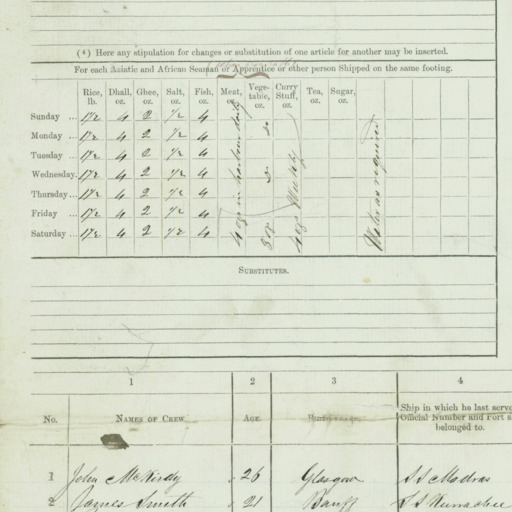 (4) Here any stipulation for changes or substitution of one article for another may be inserted.
For each Asiatic and African Seaman or Apprentice or other person Shipped on the same footing.
Rice, lb. Dhall, oz. Ghee, oz. Salt, oz. Fish, oz. Meat, oz. Vege-table, oz. Curry Stuff, oz. Tea, oz. Sugar, oz.
Sunday ... 1½ 4 2 ½ 4
Monday ... 1½ 4 2 ½ 4
Tuesday ... 1½ 4 2 ½ 4
Wednesday. 1½ 4 2 ½ 4
Thursday ... 1½ 4 2 ½ 4
Friday ... 1½ 4 2 ½ 4
Saturday ... 1½ 4 2 ½ 4
4 ozs in harbour daily
8 ozs
4 ozs Weekly
Water as required
SUBSTITUTES.
1 2 3 4
No. NAMES OF CREW. AGE. Ship in which he last serve
Official Number and Port
belonged to.
1 John McKirdy 26 Glasgow SS Madras
2 James Smith 21 Banff SS Kurrachee